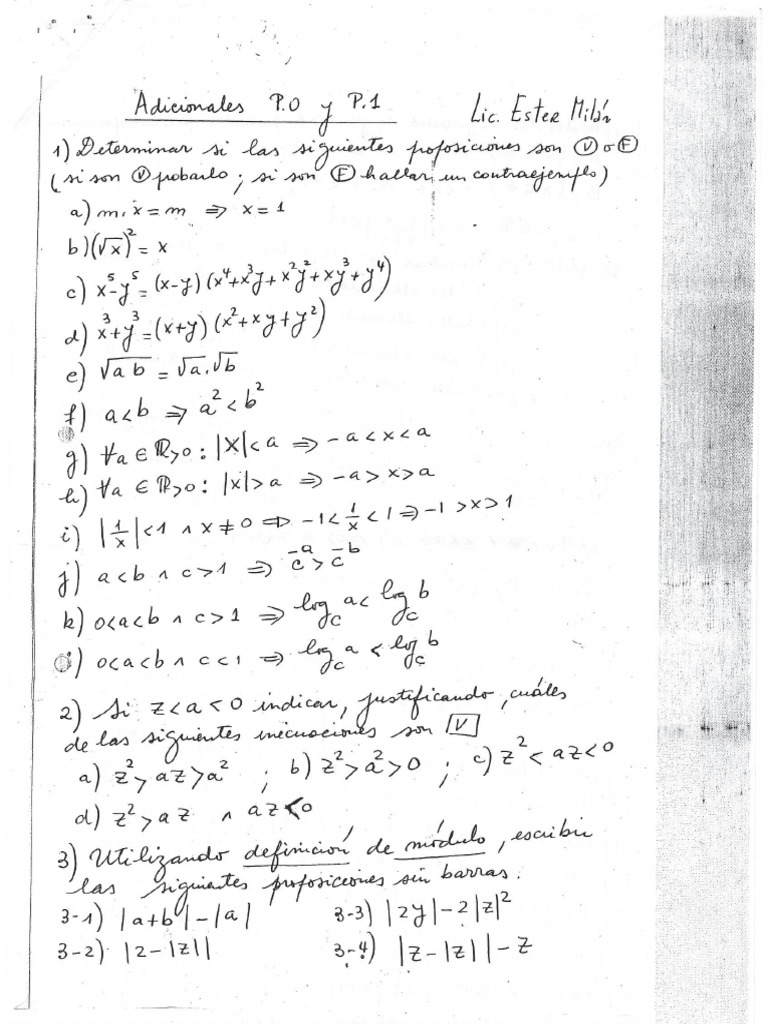 Adicionales P.0 y P.1 Lic. Ester Milán
1) Determinar si las siguientes proposiciones son Ⓥ o Ⓕ
(si son Ⓥ probarlo; si son Ⓕ hallar un contraejemplo)
a) m.x = m ⇒ x = 1
b) (√x)² = x
c) x⁵-y⁵ = (x-y)(x⁴+x³y+x²y²+xy³+y⁴)
d) x³+y³ = (x+y)(x²+xy+y²)
e) √ab = √a.√b
f) a<b ⇒ a²<b²
g) ∀a ∈ ℝ>0 : |x|<a ⇒ -a<x<a
h) ∀a ∈ ℝ>0 : |x|>a ⇒ -a>x>a
i) |1/x|<1 ∧ x≠0 ⇒ -1<1/x<1 ⇒ -1>x>1
j) a<b ∧ c>1 ⇒ c⁻ᵃ > c⁻ᵇ
k) 0<a<b ∧ c>1 ⇒ log_c a < log_c b
j) 0<a<b ∧ c<1 ⇒ log_c a < log_c b
2) Si z<a<0 indicar, justificando, cuáles
de las siguientes inecuaciones son V
a) z²>az>a² ; b) z²>a²>0 ; c) z²<az<0
d) z²>az ∧ az<0
3) Utilizando definición de módulo, escribir
las siguientes proposiciones sin barras.
3-1) |a+b|-|a| 3-3) |2y|-2|z|²
3-2) |2-|z|| 3-4) |z-|z||-z